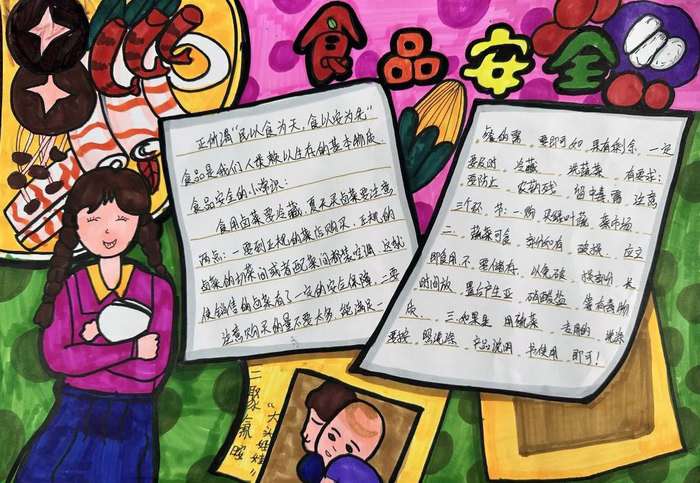 食品安全
正所谓"民以食为天,食以安为先"
食品是我们人类赖以生存的基本物质.
食品安全的小常识:
食用卤菜要冷藏,夏天买卤菜要注意
两点:一要到正规的菜店购买,正规的
卤菜的切菜间或者配菜间都装空调,这就
使销售的卤菜有了一定的安全保障,二要
注意购买的量不要太多,能满足一
餐的需,要即可如果有剩余,一定
要及时,冷藏,买蔬菜,有要求:
要防止,农药残,留中毒需,注意
三个环,节:一购买绿叶蔬菜市场
二,蔬菜可食,部分如有破损,应立
即食用不,要储存,以免破损部分长
时间放,置会产生亚硝酸盐等有毒物
质,三,如果是用硫菜,专用的洗涤
要按,照洗涤,产品说明,书使用,即可!
"大头娃娃"
三聚氰胺